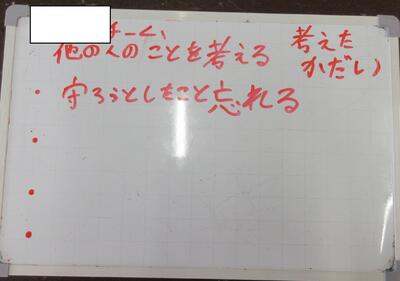 他の人のことを考える
守ろうとしたこと忘れる
考えた
かだい